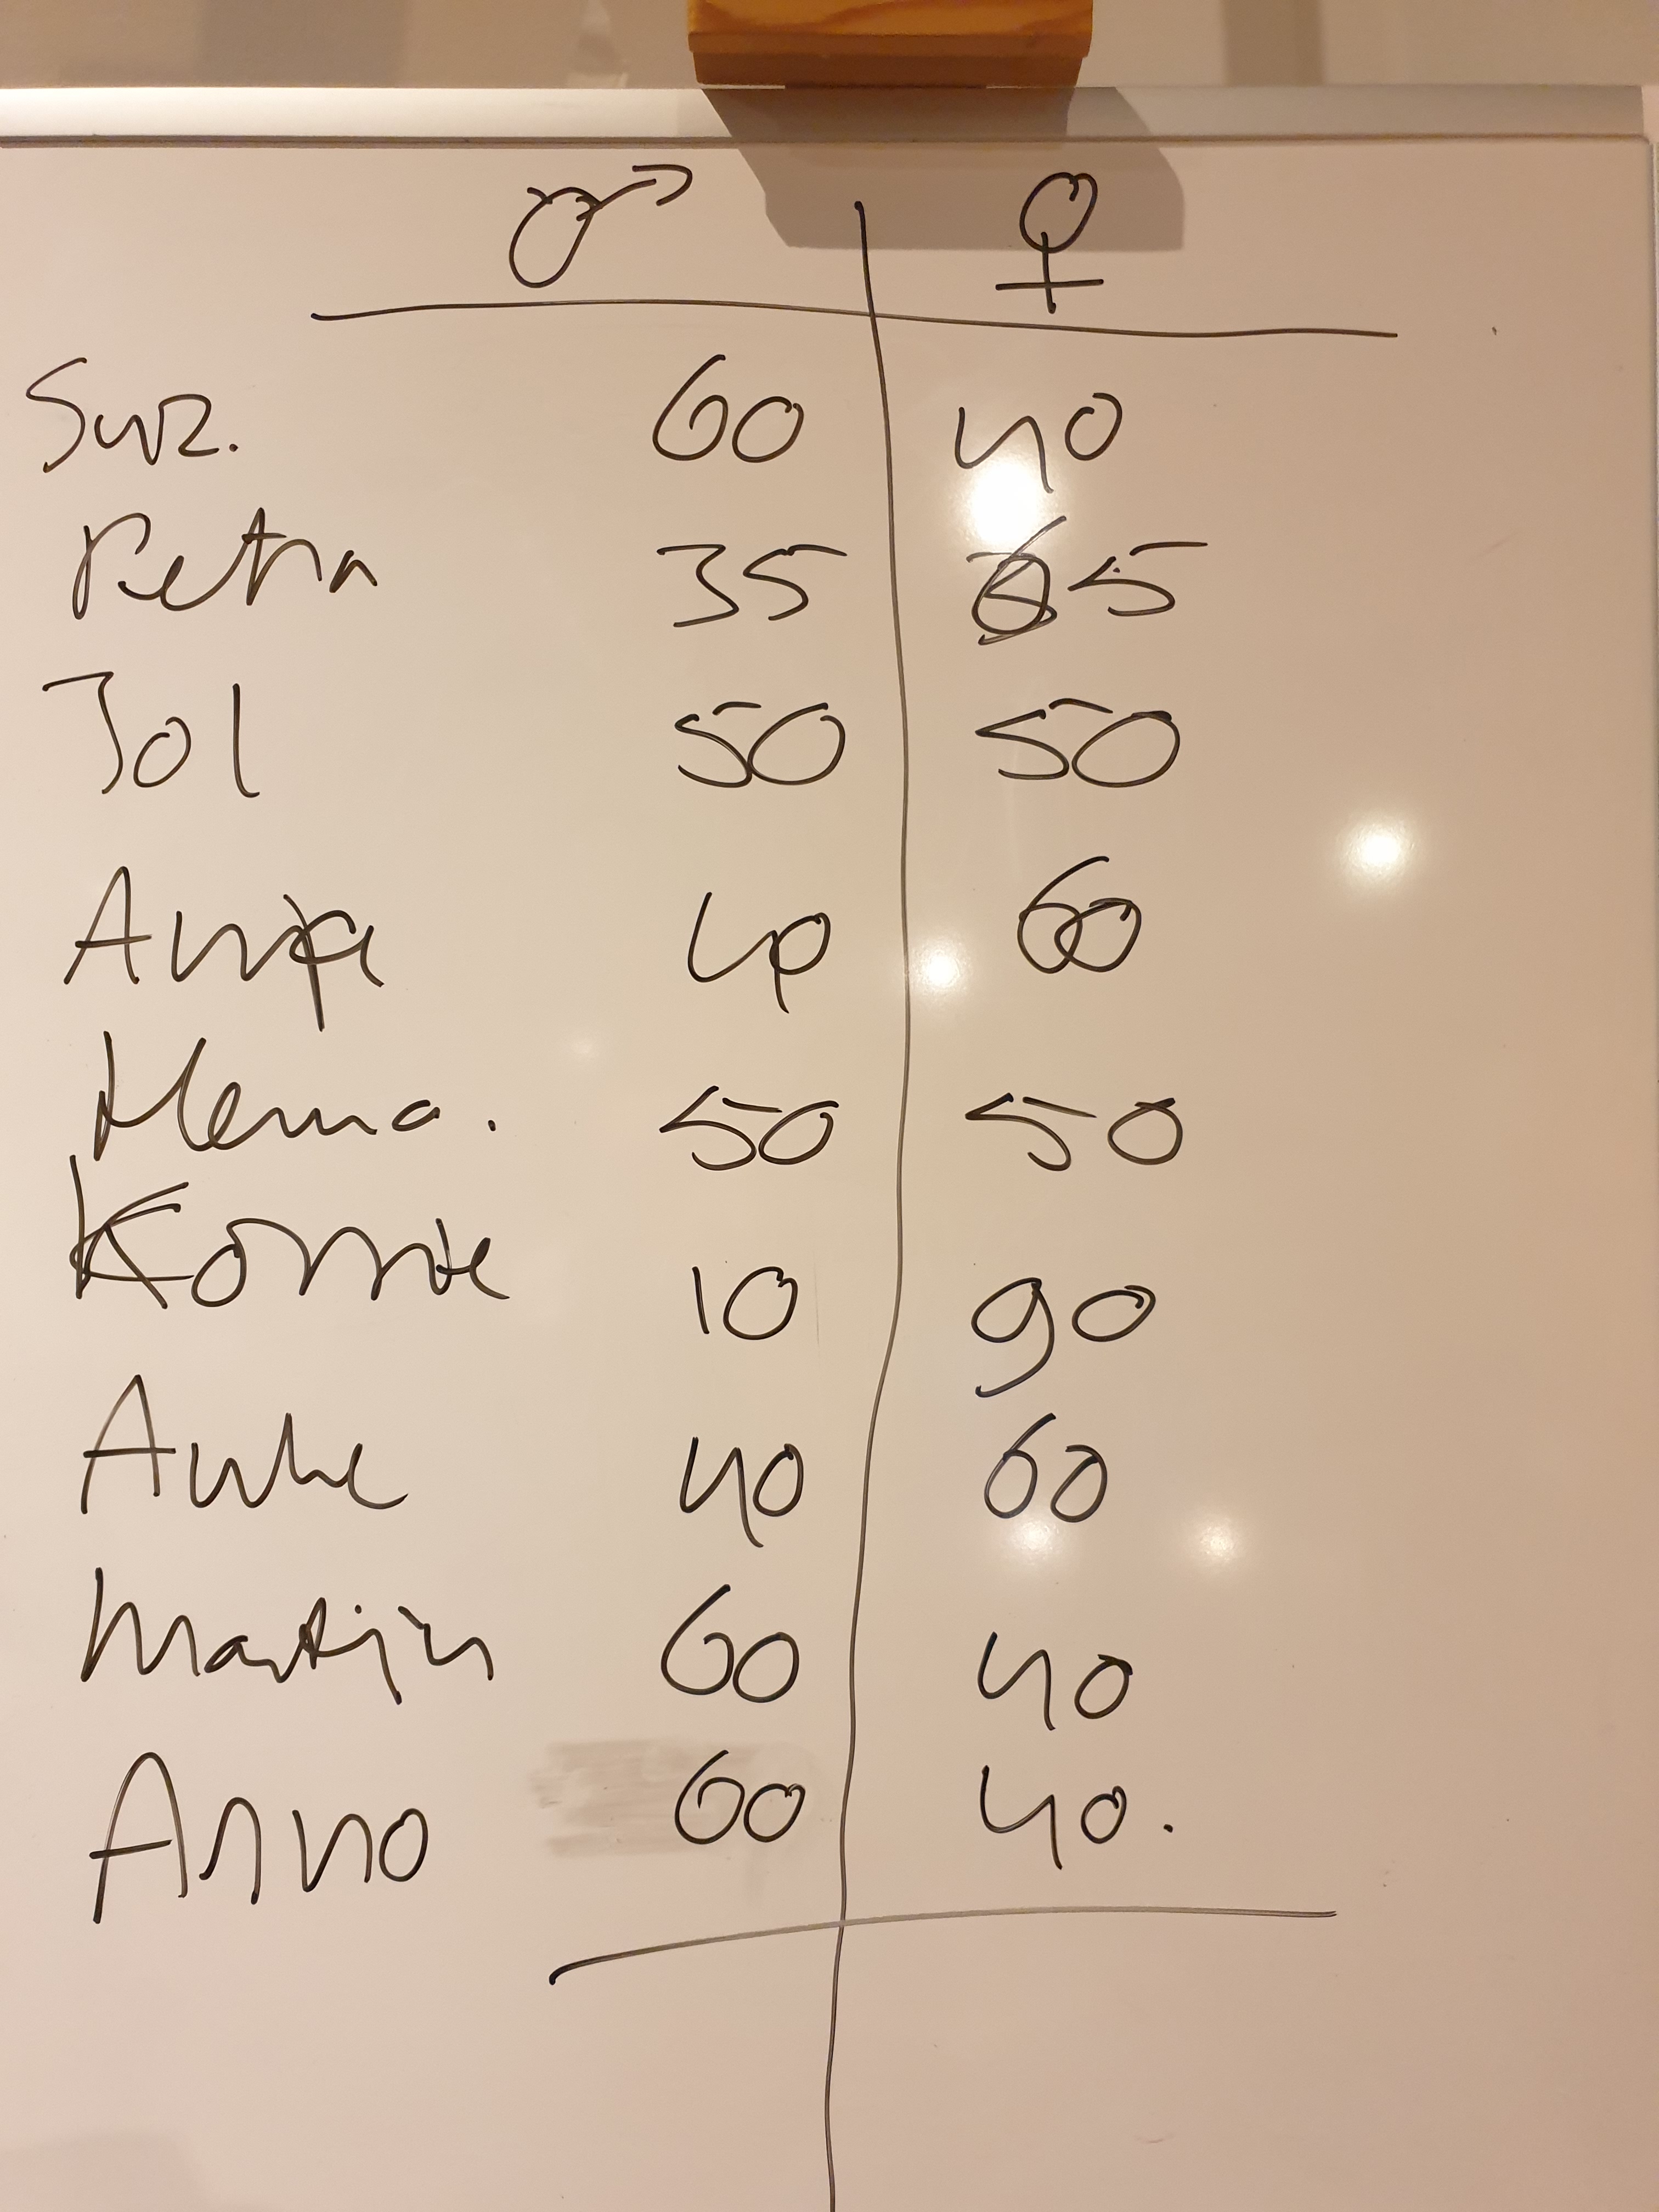 ♂ ♀
Suz. 60 40
Petra 35 65
Jol 50 50
40 60
Menno. 50 50
Korrie 10 90
Auke 40 60
Martijn 60 40
Arno 60 40.